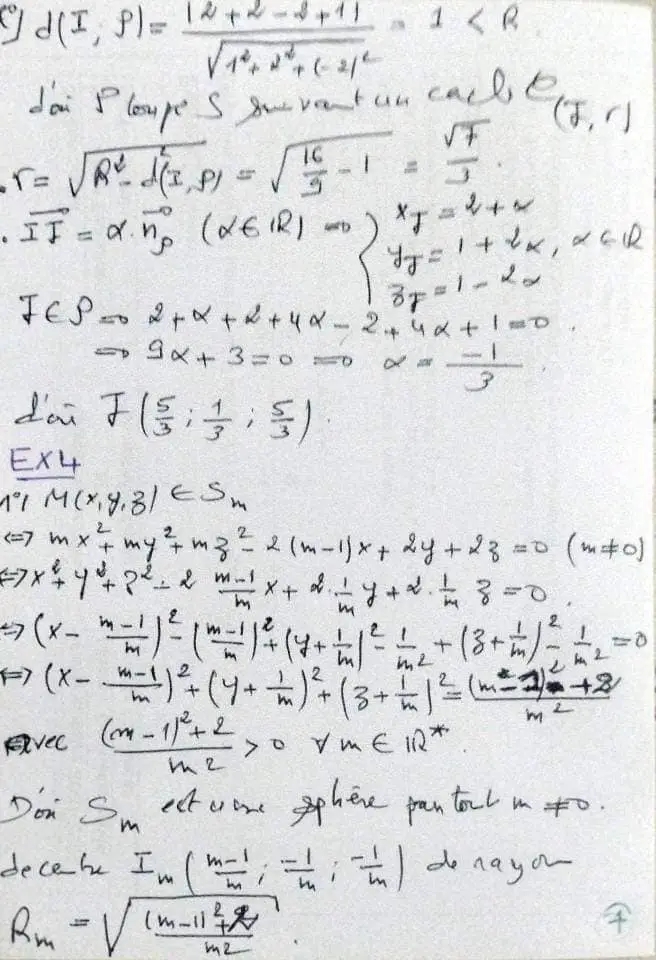 c°) d(I, P) = |2+2-2+1| / √(1²+2²+(-2)²) = 1 < R
d'où P coupe S suivant un cercle C(J, r)
. r = √(R² - d²(I, P)) = √(16/9 - 1) = √7/3.
. IJ = α.n_P (α ∈ ℝ) ⇒ { x_J = 2+α
y_J = 1+2α, α ∈ ℝ
z_J = 1-2α
J ∈ P ⇒ 2+α+2+4α-2+4α+1=0.
⇒ 9α+3=0 ⇒ α = -1/3
d'où J(5/3 ; 1/3 ; 5/3).
EX4
1°/ M(x,y,z) ∈ Sm
⇔ mx²+my²+mz²-2(m-1)x+2y+2z=0 (m≠0)
⇔ x²+y²+z²-2 (m-1)/m x+2.1/m y+2.1/m z=0.
⇔ (x-(m-1)/m)²-((m-1)/m)²+(y+1/m)²-1/m²+(z+1/m)²-1/m²=0
⇔ (x-(m-1)/m)²+(y+1/m)²+(z+1/m)²=((m-1)²+2)/m²
avec ((m-1)²+2)/m² > 0 ∀ m ∈ ℝ*.
D'où Sm est une sphère pour tout m ≠ 0.
de centre Im((m-1)/m ; -1/m ; -1/m) de rayon
Rm = √(((m-1)²+2)/m²).